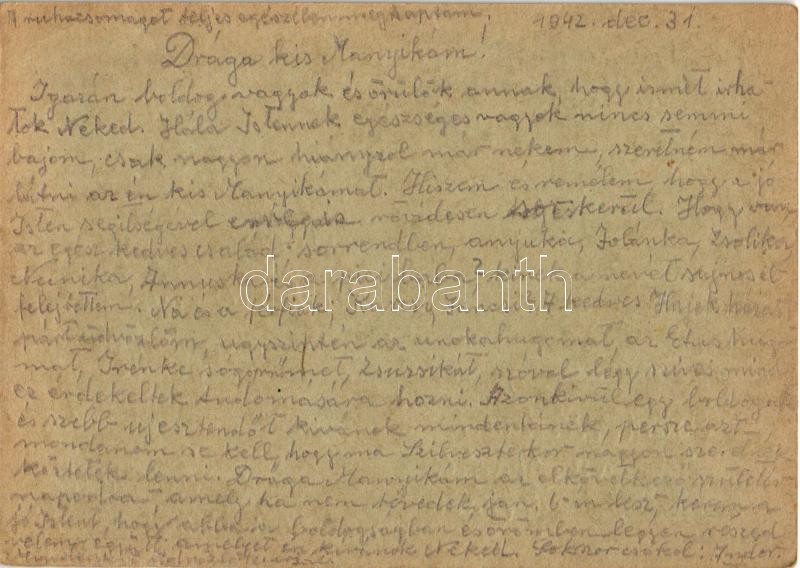 A ruhacsomagot teljes egészében megkaptam. 1942. dec. 31.
Drága kis Manyikám!
Igazán boldog vagyok és örülök annak, hogy ismét irha-
tok Neked. Hála Istennek egészséges vagyok nincs semmi
bajom, csak nagyon hiányzol már nekem, szeretném már
látni az én kis Manyikámat. Hiszem és remélem hogy a jó
Isten segitségével rövidesen sikerül. Hogy van
az egész kedves család: sorrendben, anyuka, Jolánka, Zsolika,
Annuska, és a pici baba? a nevét sajnos el-
felejtettem. Na és a A kedves Hajek
párt üdvözlöm, úgyszintén az unokahugomat, az Etus hugo-
mat, Irenke sógornőmet, Zsuzsikát, szóval légy szives mind-
ez érdekeltek tudomására hozni. Azonkivül egy boldogabb
és szebb ujesztendőt kivánok mindenkinek, persze azt
mondanom se kell, hogy ma Szilveszterkor nagyon szeretnék
köztetek lenni. Drága Manyikám az elkövetkező születés-
napodra amely ha nem tévedek jan. 6-án lesz, kérem a
jó Istent, hogy abba a boldogságban és örömben legyen részed
velem együtt amelyet én kivánok Neked. Sokszor csókol: Andor.
darabanth